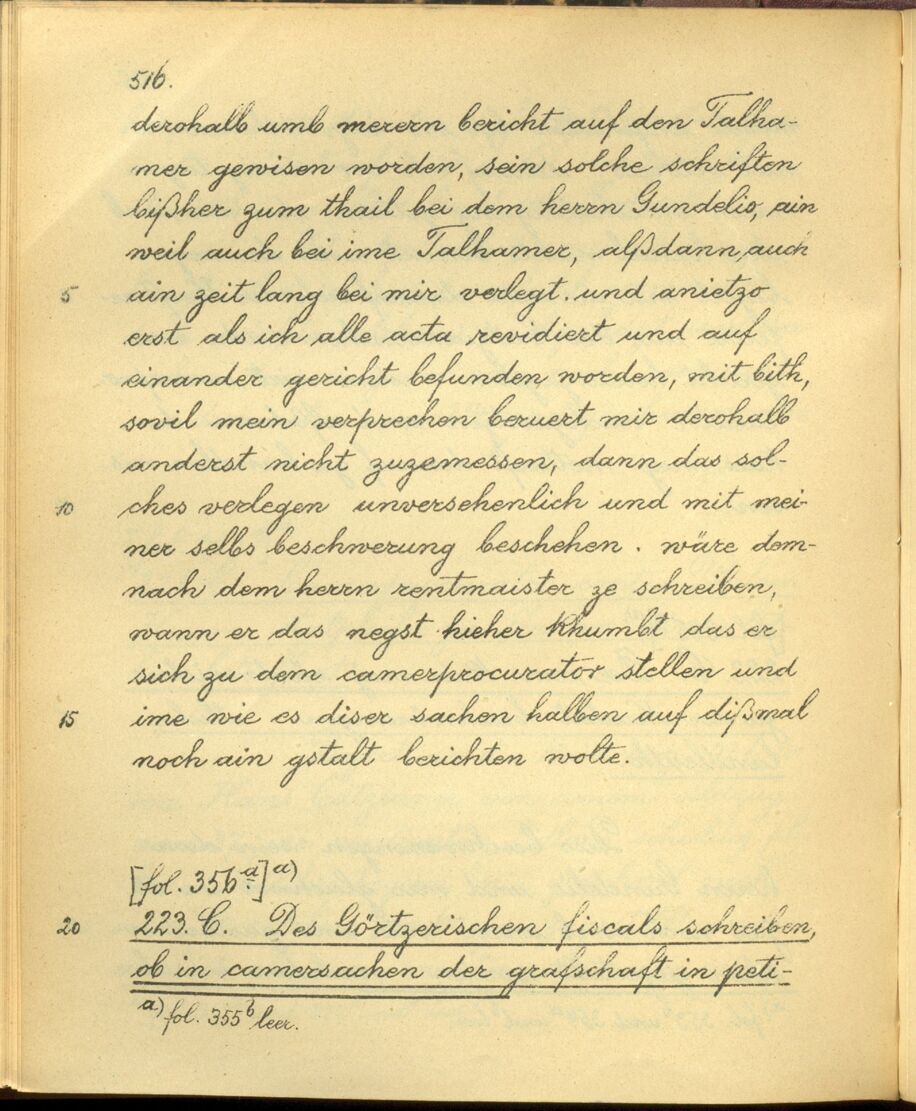 516.
derohalb umb merern bericht auf den Talha-
mer gewisen worden, sein solche schriften
bißher zum thail bei dem herrn Gundelio, ain
weil auch bei ime Talhamer, alßdann auch
5 ain zeit lang bei mir verlegt. und anietzo
erst als ich alle acta revidiert und auf
einander gericht befunden worden, mit bith,
sovil mein verprechen beruert mir derohalb
anderst nicht zuzemessen, dann das sol-
10 ches verlegen unversehenlich und mit mei-
ner selbs beschwerung beschehen. wäre dem-
nach dem herrn rentmaister ze schreiben,
wann er das negst hieher khumbt das er
sich zu dem camerprocurator stellen und
15 ime wie es diser sachen halben auf dißmal
noch ain gstalt berichten wolte.
[fol. 356a] a)
20 223. C. Des Görtzerischen fiscals schreiben,
ob in camersachen der grafschaft in peti-
a) fol. 355b leer.